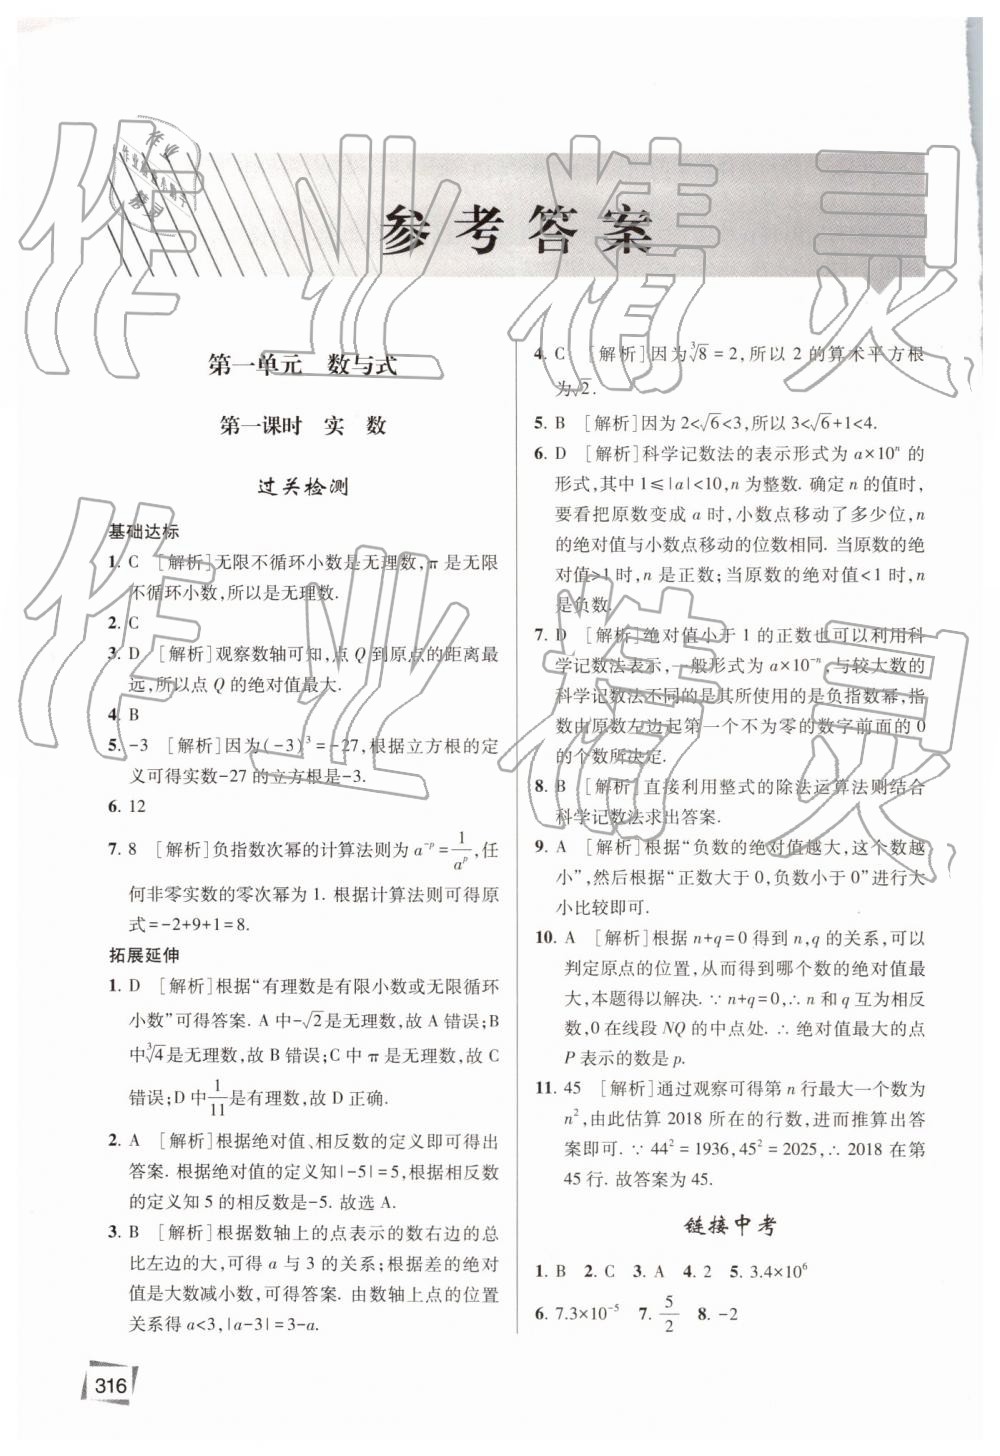 参考答案
第一单元 数与式
第一课时 实 数
过关检测
基础达标
1. C [解析]无限不循环小数是无理数,π 是无限
不循环小数,所以是无理数.
2. C
3. D [解析]观察数轴可知,点 Q 到原点的距离最
远,所以点 Q 的绝对值最大.
4. B
5. -3 [解析]因为(-3)³=-27,根据立方根的定
义可得实数-27 的立方根是-3.
6. 12
7. 8 [解析]负指数次幂的计算法则为 a⁻ᵖ=1/aᵖ,任
何非零实数的零次幂为 1. 根据计算法则可得原
式=-2+9+1=8.
拓展延伸
1. D [解析]根据“有理数是有限小数或无限循环
小数”可得答案. A 中-√2是无理数,故 A 错误;B
中∛4是无理数,故 B 错误;C 中 π 是无理数,故 C
错误;D 中1/11是有理数,故 D 正确.
2. A [解析]根据绝对值、相反数的定义即可得出
答案. 根据绝对值的定义知|-5|=5,根据相反数
的定义知 5 的相反数是-5. 故选 A.
3. B [解析]根据数轴上的点表示的数右边的总
比左边的大,可得 a 与 3 的关系;根据差的绝对
值是大数减小数,可得答案. 由数轴上点的位置
关系得 a<3,|a-3|=3-a.
316
4. C [解析]因为∛8=2,所以 2 的算术平方根
为√2.
5. B [解析]因为 2<√6<3,所以 3<√6+1<4.
6. D [解析]科学记数法的表示形式为 a×10ⁿ 的
形式,其中 1≤|a|<10,n 为整数. 确定 n 的值时,
要看把原数变成 a 时,小数点移动了多少位,n
的绝对值与小数点移动的位数相同. 当原数的绝
对值>1 时,n 是正数;当原数的绝对值<1 时,n
是负数.
7. D [解析]绝对值小于 1 的正数也可以利用科
学记数法表示,一般形式为 a×10⁻ⁿ,与较大数的
科学记数法不同的是其所使用的是负指数幂,指
数由原数左边起第一个不为零的数字前面的 0
的个数所决定.
8. B [解析]直接利用整式的除法运算法则结合
科学记数法求出答案.
9. A [解析]根据“负数的绝对值越大,这个数越
小”,然后根据“正数大于 0,负数小于 0”进行大
小比较即可.
10. A [解析]根据 n+q=0 得到 n,q 的关系,可以
判定原点的位置,从而得到哪个数的绝对值最
大,本题得以解决. ∵ n+q=0,∴ n 和 q 互为相反
数,0 在线段 NQ 的中点处. ∴ 绝对值最大的点
P 表示的数是 p.
11. 45 [解析]通过观察可得第 n 行最大一个数为
n²,由此估算 2018 所在的行数,进而推算出答
案即可. ∵ 44²=1936,45²=2025,∴ 2018 在第
45 行. 故答案为 45.
链接中考
1. B 2. C 3. A 4. 2 5. 3.4×10⁶
6. 7.3×10⁻⁵ 7. 5/2 8. -2
作业精灵
作业精灵